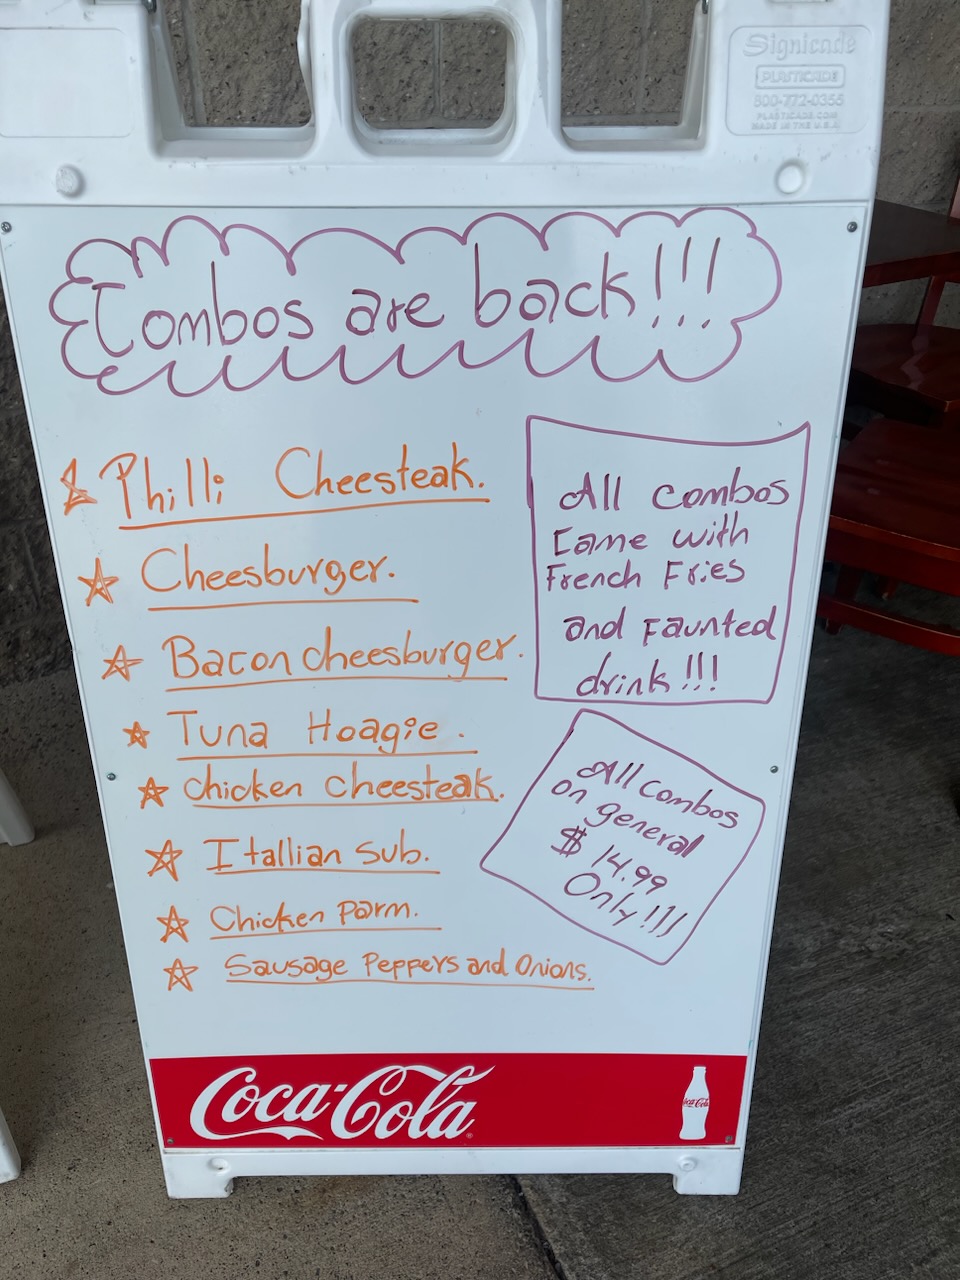 Signicade
PLASTICADE
800-772-0355
PLASTICADE.COM
MADE IN THE U.S.A.
Combos are back!!!
Philli Cheesteak.
Cheesburger.
Bacon cheesburger.
Tuna Hoagie.
Chicken Cheesteak.
Itallian Sub.
Chicken Parm.
Sausage Peppers and Onions.
All combos
Came with
French Fries
and Faunted
drink!!!
All combos
on general
$ 14.99
Only!!!
Coca-Cola
Coca-Cola